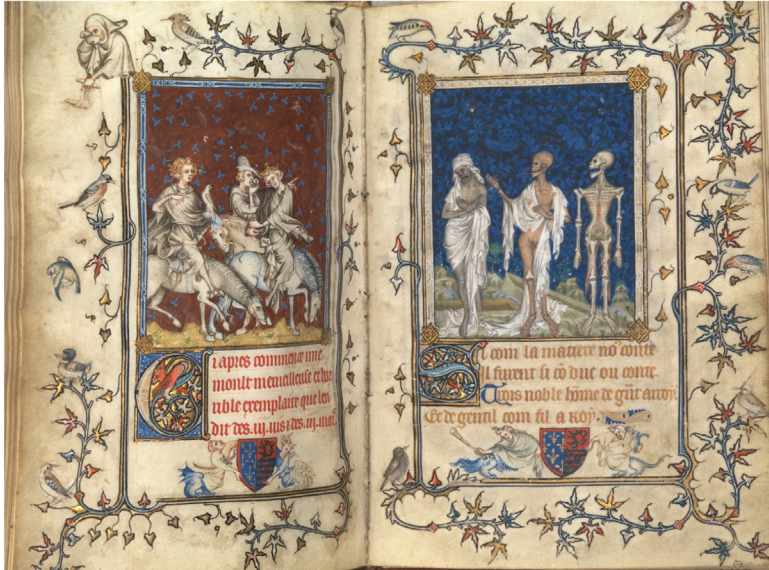 Ci apres commence une
moult merueilleuse et hor
rible exemplaire que len
dit des .iii. uis ⁊ des .iii. mors
Si com la matiere no⁹ conte
Il furent si cō duc ou conte
Trois noble hōme de grāt arroy
Et de gentil com fil a roy.